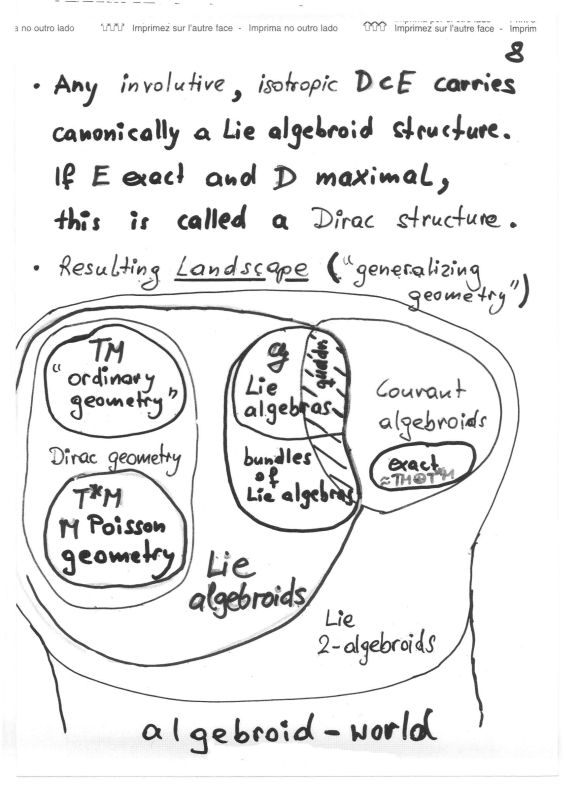 a no outro lado Imprimez sur l'autre face - Imprima no outro lado Imprimez sur l'autre face - Imprim
8
• Any involutive, isotropic D⊂E carries
canonically a Lie algebroid structure.
If E exact and D maximal,
this is called a Dirac structure.
• Resulting Landscape ("generalizing
geometry")
TM
"ordinary
geometry"
Dirac geometry
T*M
M Poisson
geometry
g
Lie
algebras
bundles
of
Lie algebras
quadr.
Courant
algebroids
exact
≈TM⊕T*M
Lie
algebroids
Lie
2-algebroids
algebroid-world